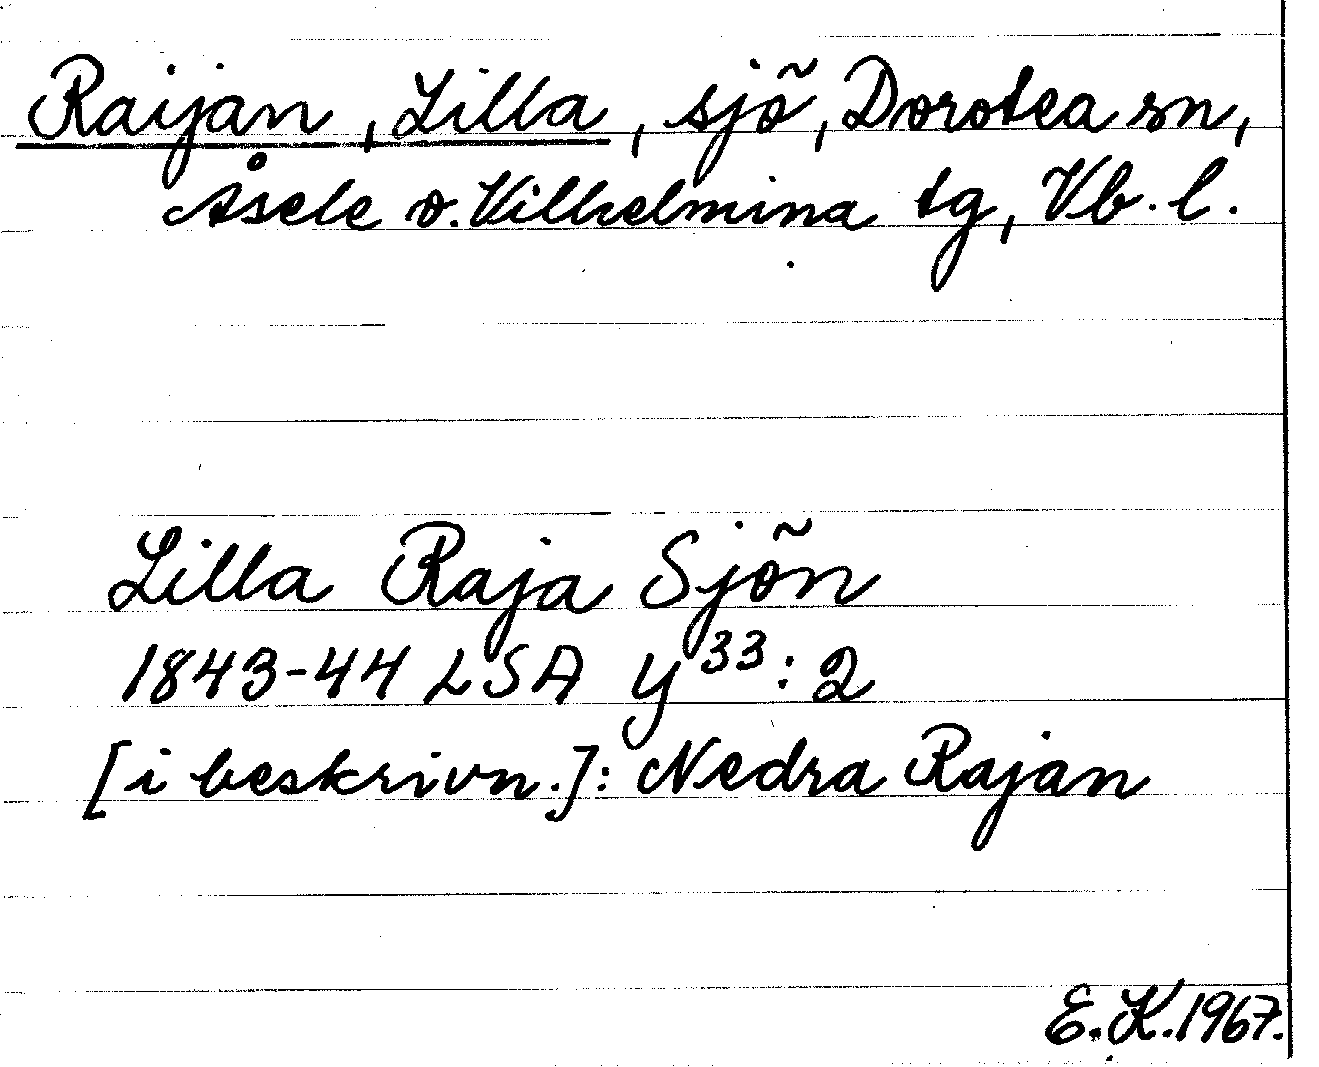 Raijan, Lilla, sjö, Dorotea sn,
Åsele o. Vilhelmina tg, Vb. l.
Lilla Raja Sjön
1843-44 LSA Y³³:2
[i beskrivn.]: Nedra Rajan
E.K.1967.